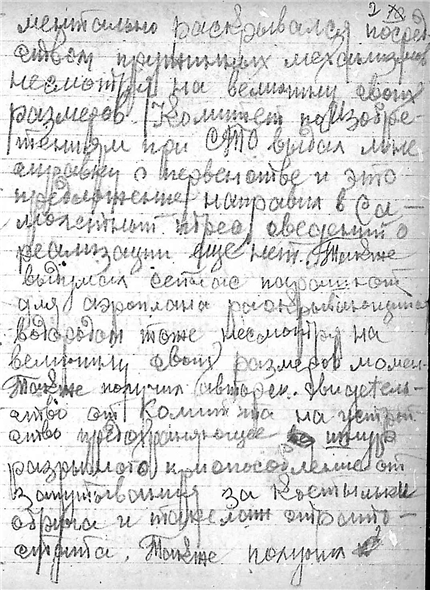 2
ментально раскрывался посред
ством пружинных механизмов
несмотря на величину своих
размеров. Комитет по изобре-
тениям при СТО выдал мне
справку о первенстве и это
предложение направил в Са-
молетный трест сведений о
реализации еще нет. Также
выдумал сейчас парашют
для аэроплана раскрывающийся
водородом тоже несмотря на
величину своих размеров момен-
Также получил авторск. свидетель-
ство от Комитета на устрой
ство предохраняющее
разрывного от
запутывания за костыльки
обруча и
стата. Также получил